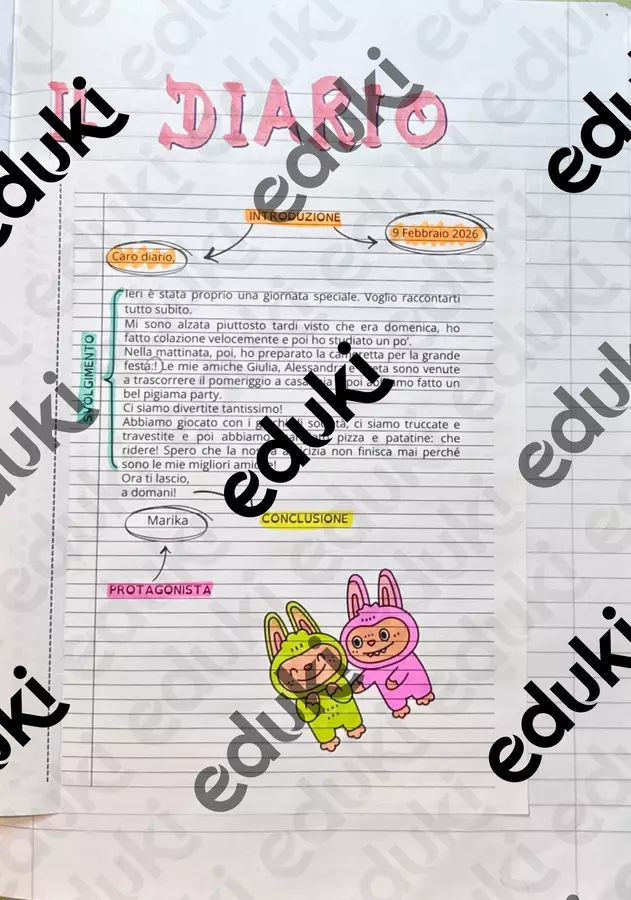 IL DIARIO
INTRODUZIONE
9 Febbraio 2026
Caro diario,
Ieri è stata proprio una giornata speciale. Voglio raccontarti
tutto subito.
Mi sono alzata piuttosto tardi visto che era domenica, ho
fatto colazione velocemente e poi ho studiato un po'.
Nella mattinata, poi, ho preparato la cameretta per la grande
festa:! Le mie amiche Giulia, Alessandra sono venute
a trascorrere il pomeriggio a casa mia poi abbiamo fatto un
bel pigiama party.
Ci siamo divertite tantissimo!
Abbiamo giocato con i giochi di società, ci siamo truccate e
travestite e poi abbiamo mangiato pizza e patatine: che
ridere! Spero che la nostra amicizia non finisca mai perché
sono le mie migliori amiche!
Ora ti lascio,
a domani!
SVOLGIMENTO
CONCLUSIONE
Marika
PROTAGONISTA
eduki
eduki
eduki
eduki
eduki
eduki
eduki